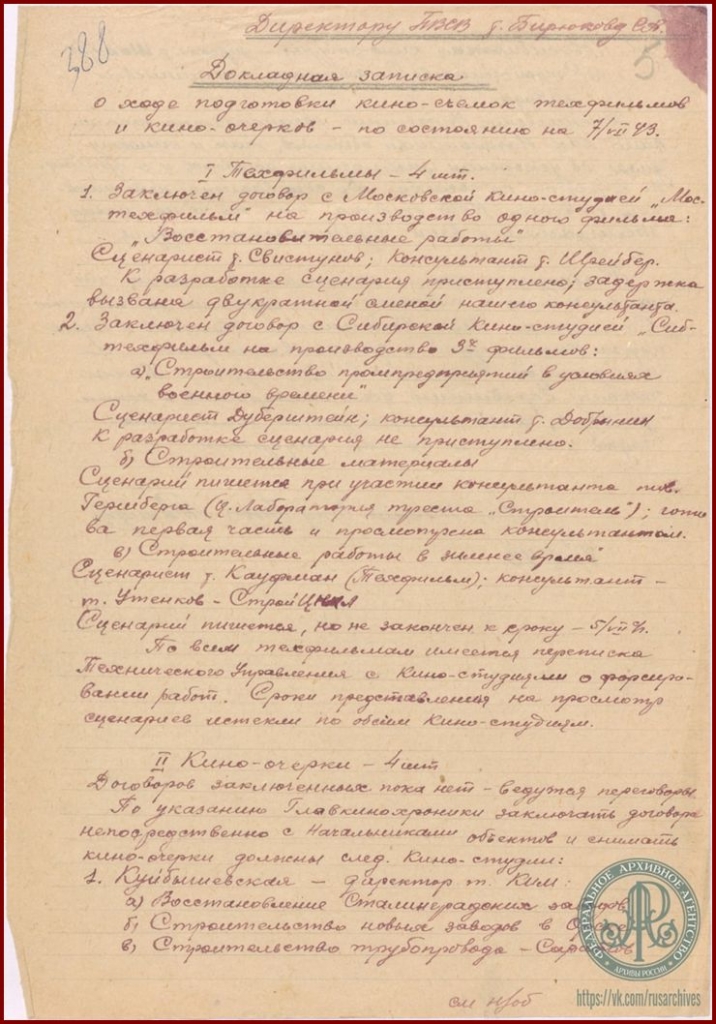 388
Директору ПВСВ т. Бирюкову
5
Докладная записка
о ходе подготовки кино-съемок техфильмов
и кино-очерков – по состоянию на 7/VII 43.
I Техфильмы – 4 шт.
1. Заключен договор с Московской Кино-студией „Мос-
техфильм" на производство одного фильма:
„Восстановительные работы"
Сценарист т. Свистунов; Консультант т. Шрейбер.
К разработке сценария приступлено; задержка
вызвана двукратной сменой нашего консультанта.
2. Заключен договор с Сибирской Кино-студией „Сиб-
техфильм на производство 3х фильмов:
а) „Строительство промпредприятий в условиях
военного времени"
Сценарист Дуберштейн; консультант т. Добрынин
К разработке сценария не приступлено.
б) Строительные материалы
Сценарий пишется при участии консультанта тов.
(Ц. Лаборатория треста „Строитель"); гото-
ва первая часть и просмотрена консультантом.
в) Строительные работы в зимнее время"
Сценарист т. Кауфман (Техфильм); консультант –
т. Утенков – СтройЦНИЛ
Сценарий пишется, но не закончен к сроку – 5/VII
По всем техфильмам имеется переписка
Технического Управления с Кино-студиями о форсиро-
вании работ. Сроки представления на просмотр
сценариев истекли по обеим Кино-студиям.
II Кино-очерки – 4 шт
Договоров заключенных пока нет – ведутся переговоры.
По указанию Главкинохроники заключать договора
непосредственно с Начальниками объектов и снимать
кино-очерки должны след. Кино-студии:
1. Куйбышевская – директор т. Ким:
а) Восстановление Сталинградских заводов
б) Строительство новых заводов в
в) Строительство трубопровода –
см н/об
ФЕДЕРАЛЬНОЕ АРХИВНОЕ АГЕНТСТВО
АРХИВЫ РОССИИ
https://vk.com/rusarchives